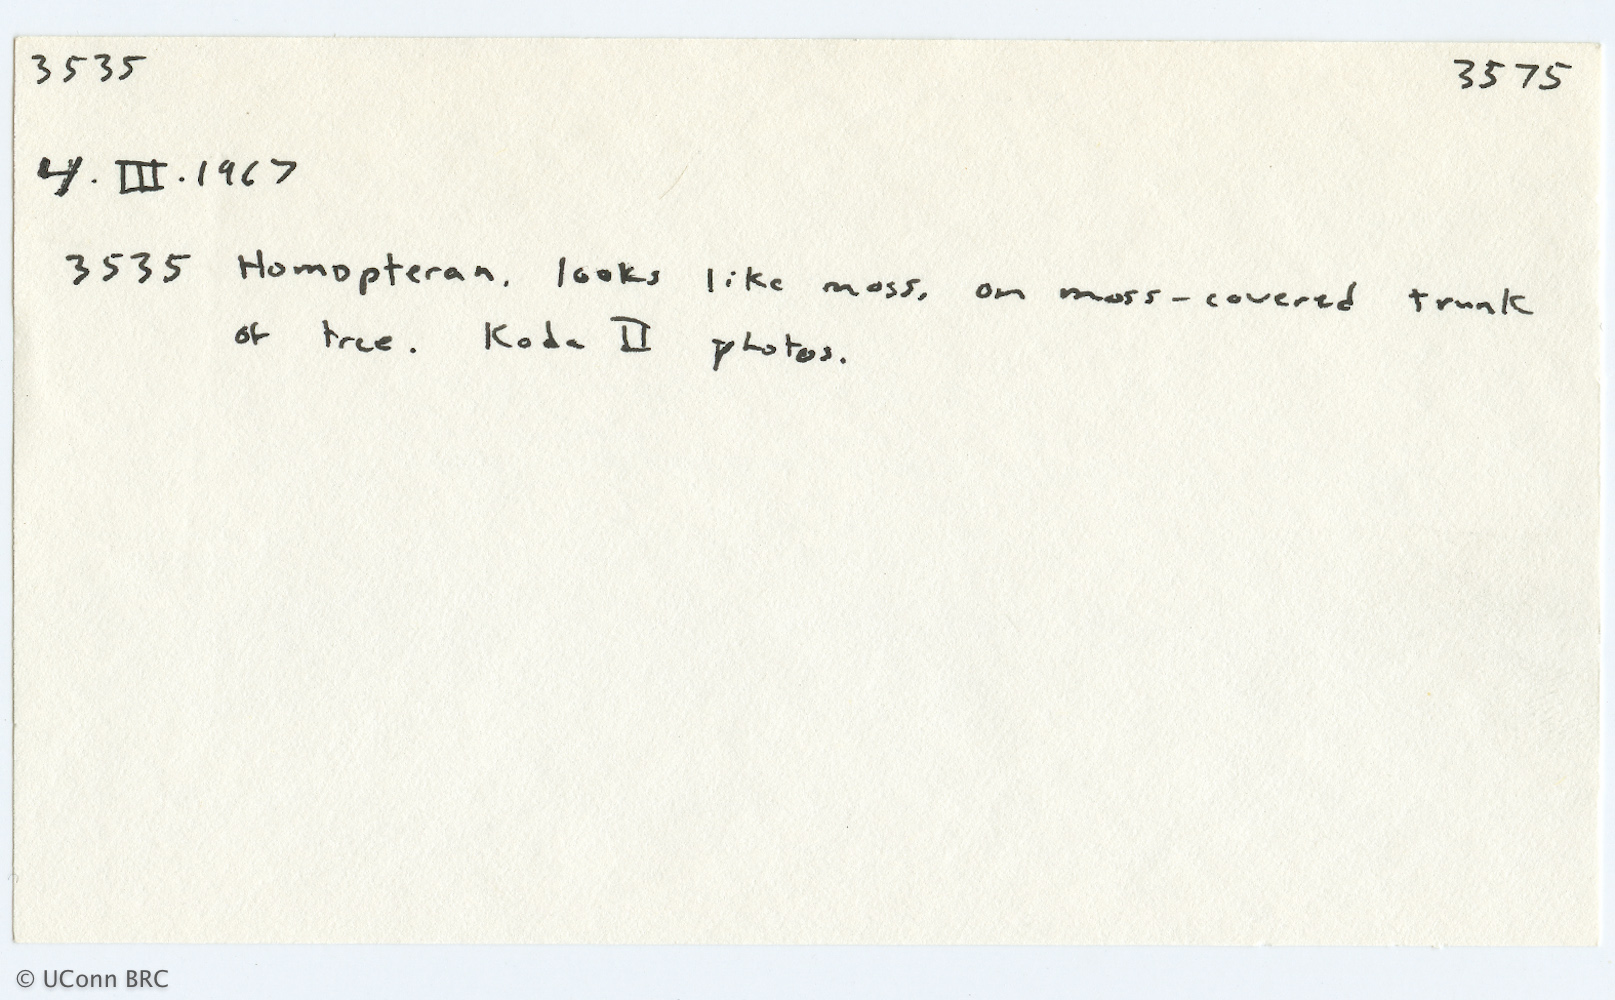 3535 3575
4. III. 1967
3535 Homopteran. looks like moss, on moss-covered trunk
of tree. Koda II photos.
© UConn BRC